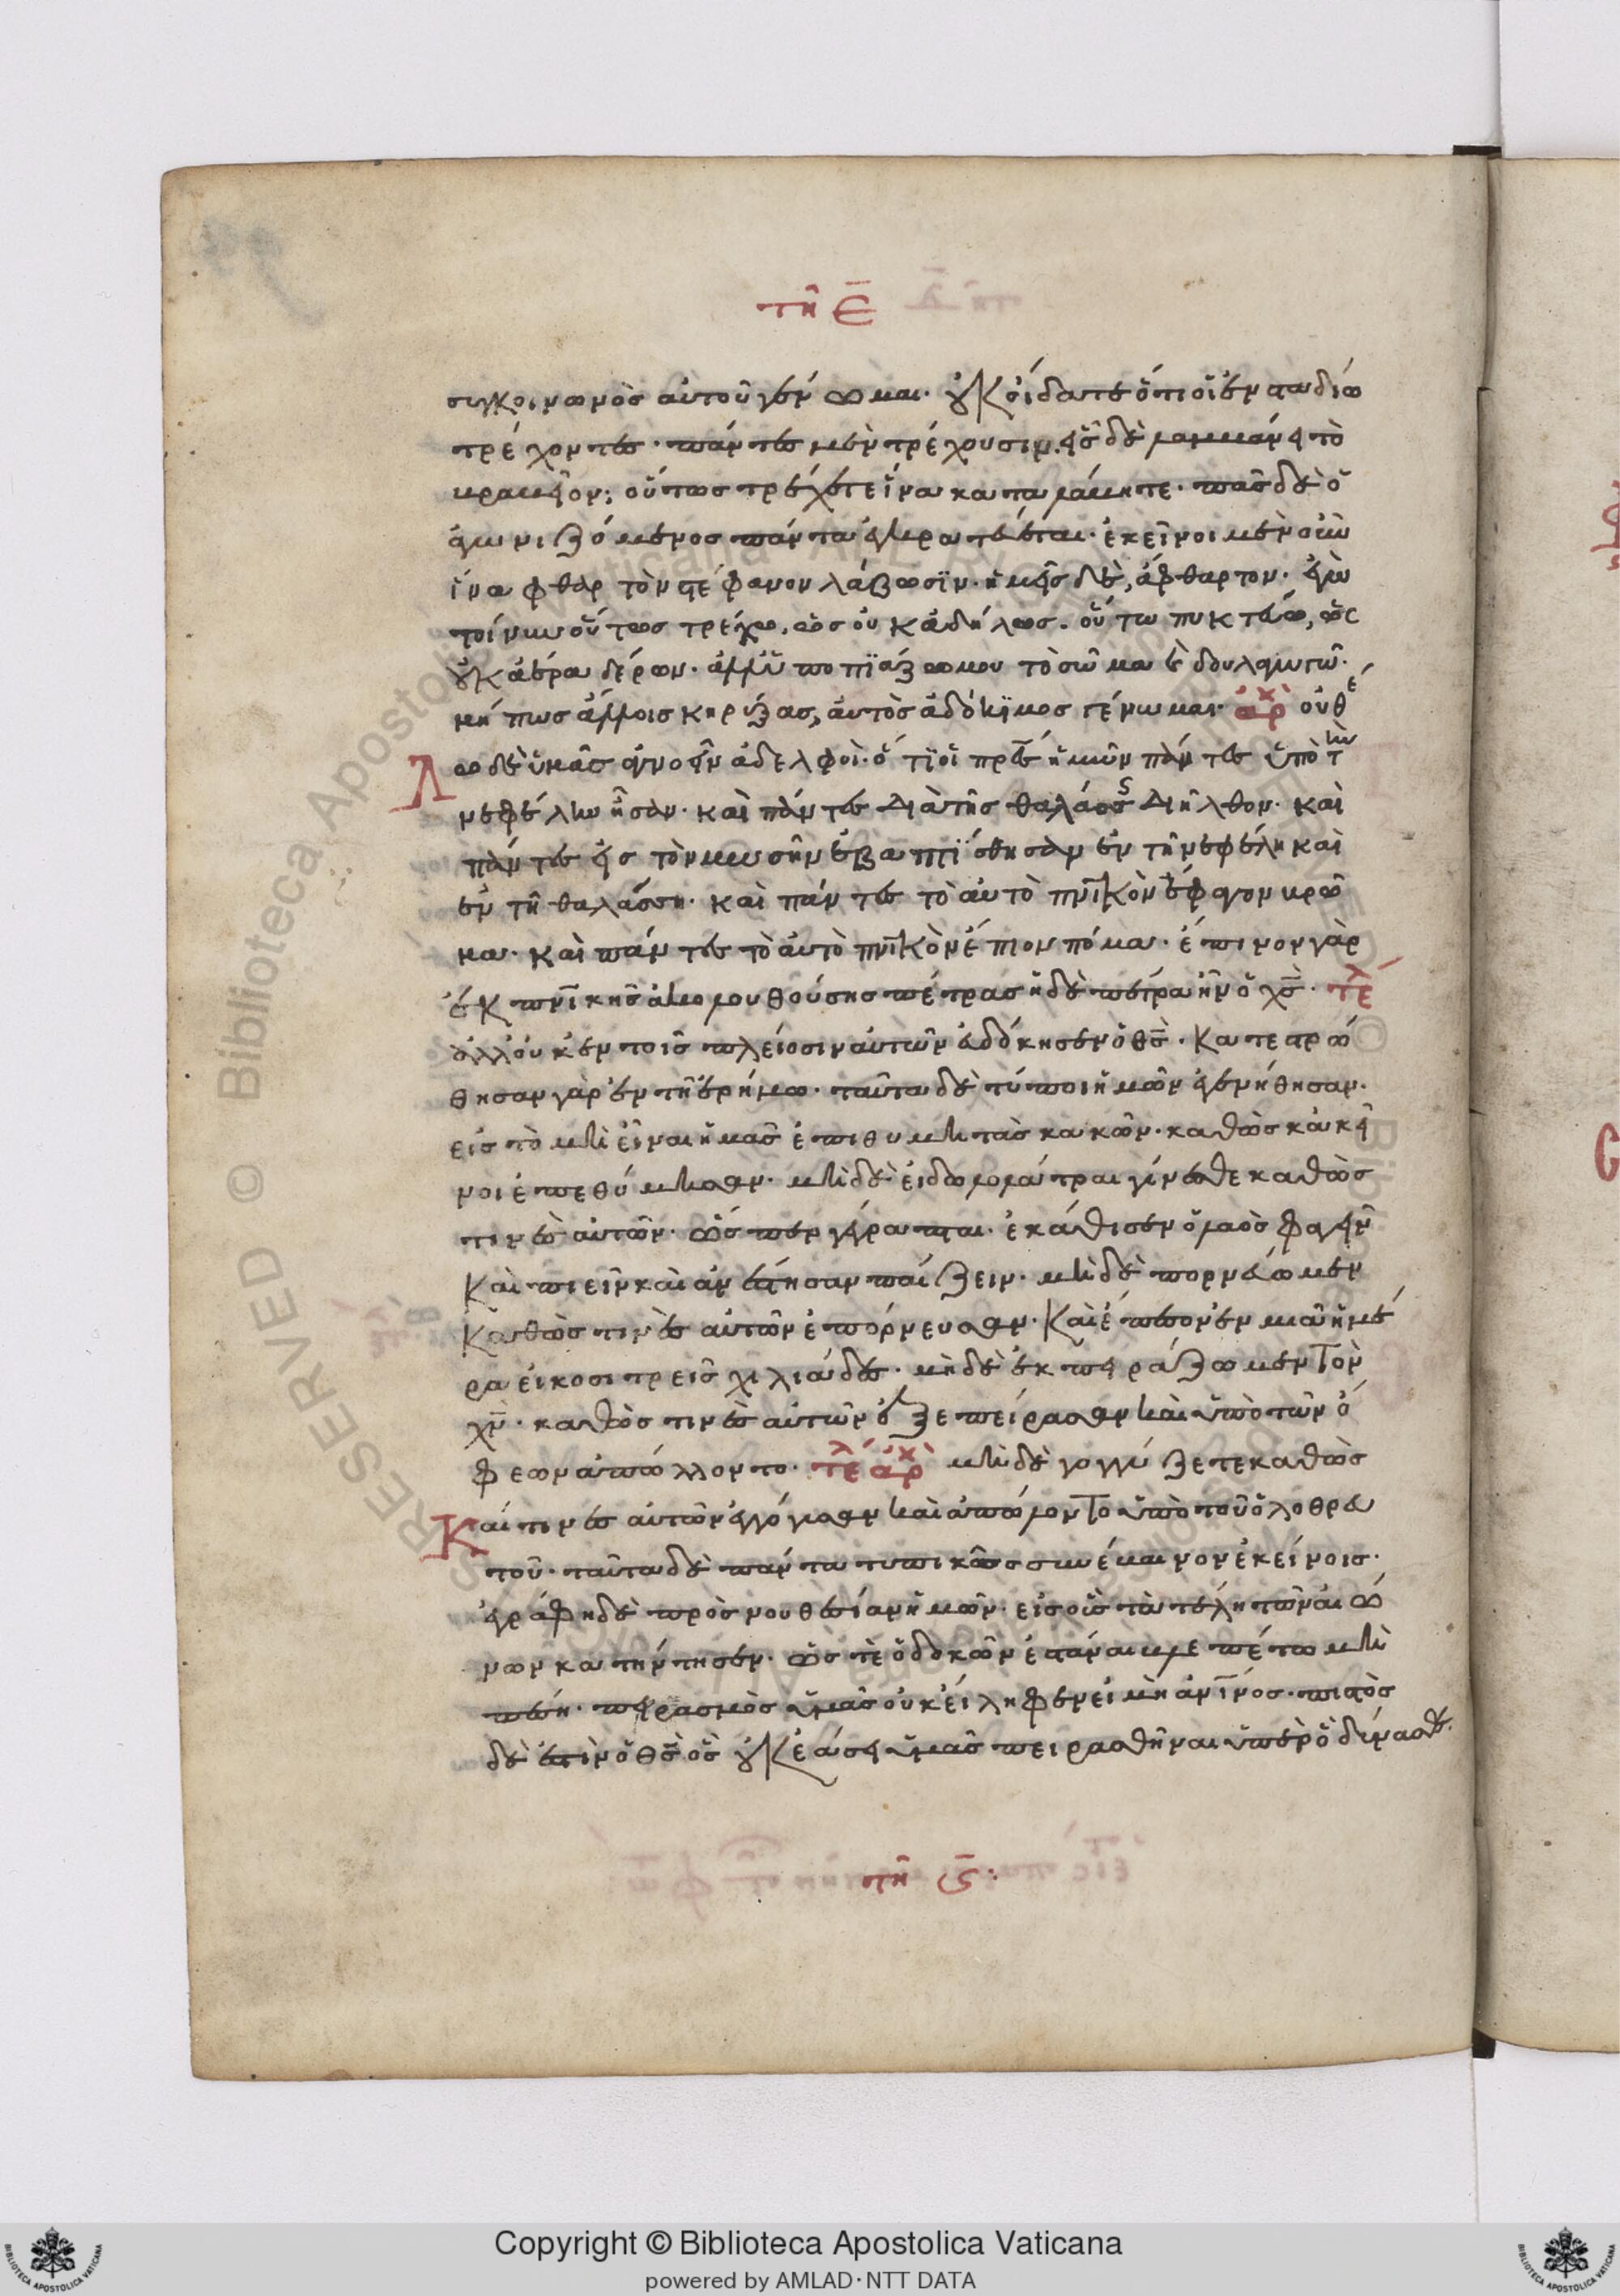 τῆ ε̄
συγκοινωνὸς αὐτοῦ γένωμαι· οὐκ οἴδατε ὅτι οἱ ἐν σταδίω
τρέχοντες· πάντες μὲν τρέχουσιν· εἷς δὲ λαμβάνει τὸ
βραβεῖον; οὕτως τρέχετε ἵνα καταλάβητε· πᾶς δὲ ὁ
ἀγωνιζόμενος πάντα ἐγκρατεύεται· ἐκεῖνοι μὲν οὖν
ἵνα φθαρτὸν στέφανον λάβωσϊν· ἡμεῖς δὲ, ἄφθαρτον· ἐγὼ
τοίνυν οὕτως τρέχω, ὡς οὐκ ἀδήλως· οὕτω πυκτεύω, ὡς
οὐκ ἀέρα δέρων· ἀλλ' ὑποπϊάζω μου τὸ σῶμα ὲ δουλαγωγῶ·
μή πως ἄλλοις κηρύξας, αὐτὸς ἀδόκϊμος γένωμαι· ἀρχ οὐ θέ
λω δὲ ὑμᾶς ἀγνοεῖν ἀδελφοὶ· ὅτϊ οἱ πρες ἡμῶν πάντες ὑπὸ τὴν
νεφέλην ἦσαν· καὶ πάντες διὰ τῆς θαλάσσης διῆλθον· καὶ
πάντες εἰς τὸν μωσῆν ἐβαπτΐσθησαν ἐν τῆ νεφέλη καὶ
ἐν τῆ θαλάσση· καὶ πάντες τὸ αὐτὸ πνικὸν ἔφαγον βρῶ
μα· καὶ πάντες τὸ αὐτὸ πνικὸν ἔπιον πόμα· ἔπινον γὰρ
ἐκ πνικῆς ἀκολουθούσης πέτρας ἡ δὲ πέτρα ἦν ὁ χς̄· τελ
ἀλλ' οὐκ ἐν τοῖς πλείοσιν αὐτῶν εὐδόκησεν ὁ θς̄· κατεστρώ
θησαν γὰρ ἐν τῆ ἐρήμω· ταῦτα δὲ τύποι ἡμῶν ἐγενήθησαν·
εἰς τὸ μὴ εἶναι ἡμᾶς ἐπιθυμητὰς κακῶν· καθὼς κἀκεῖ
νοι ἐπεθύμησαν· μὴ δὲ εἰδωλολάτραι γίνεσθε καθὼς
τινὲς αὐτῶν· ὥσπερ γέγραπται· ἐκάθισεν ὁ λαὸς φαγεῖν
καὶ πιεῖν καὶ ἀνέστησαν παίζειν· μὴ δὲ πορνεύωμεν
καθὼς τινὲς αὐτῶν ἐπόρνευσαν· καὶ ἔπεσον ἐν μιᾶ ἡμέ
ρα εἰκοσιτρεῖς χιλιάδες· μὴ δὲ ἐκπειράζωμεν τὸν
χν̄· καθὼς τινὲς αὐτῶν ἐξεπείρασαν καὶ ὑπὸ τῶν ὄ
φεων ἀπώλλοντο· τελ ἀρχ μὴ δὲ γογγύζετε καθὼς
καί τινες αὐτῶν ἐγόγγυσαν καὶ ἀπώλοντο ὑπὸ τοῦ ὀλοθρευ
τοῦ· ταῦτα δὲ πάντα τυπικῶς συνέβαινον ἐκείνοις·
ἐγράφη δὲ πρὸς νουθεσίαν ἡμῶν· εἰς οὓς τὰ τέλη τῶν αἰώ
νων κατήντησεν· ὥστε ὁ δοκῶν ἑστάναι βλεπέτω μὴ
πέση· πειρασμὸς ὑμᾶς οὐκ εἴληφεν εἰ μὴ ἀνῑνος· πιστὸς
δὲ ἐστὶν ὁ θς̄ ὃς οὐκ ἐάσει ὑμᾶς πειρασθῆναι ὑπὲρ ὃ δύνασθε·
τῆ ϛ̄·
Copyright © Biblioteca Apostolica Vaticana
powered by AMLAD·NTT DATA